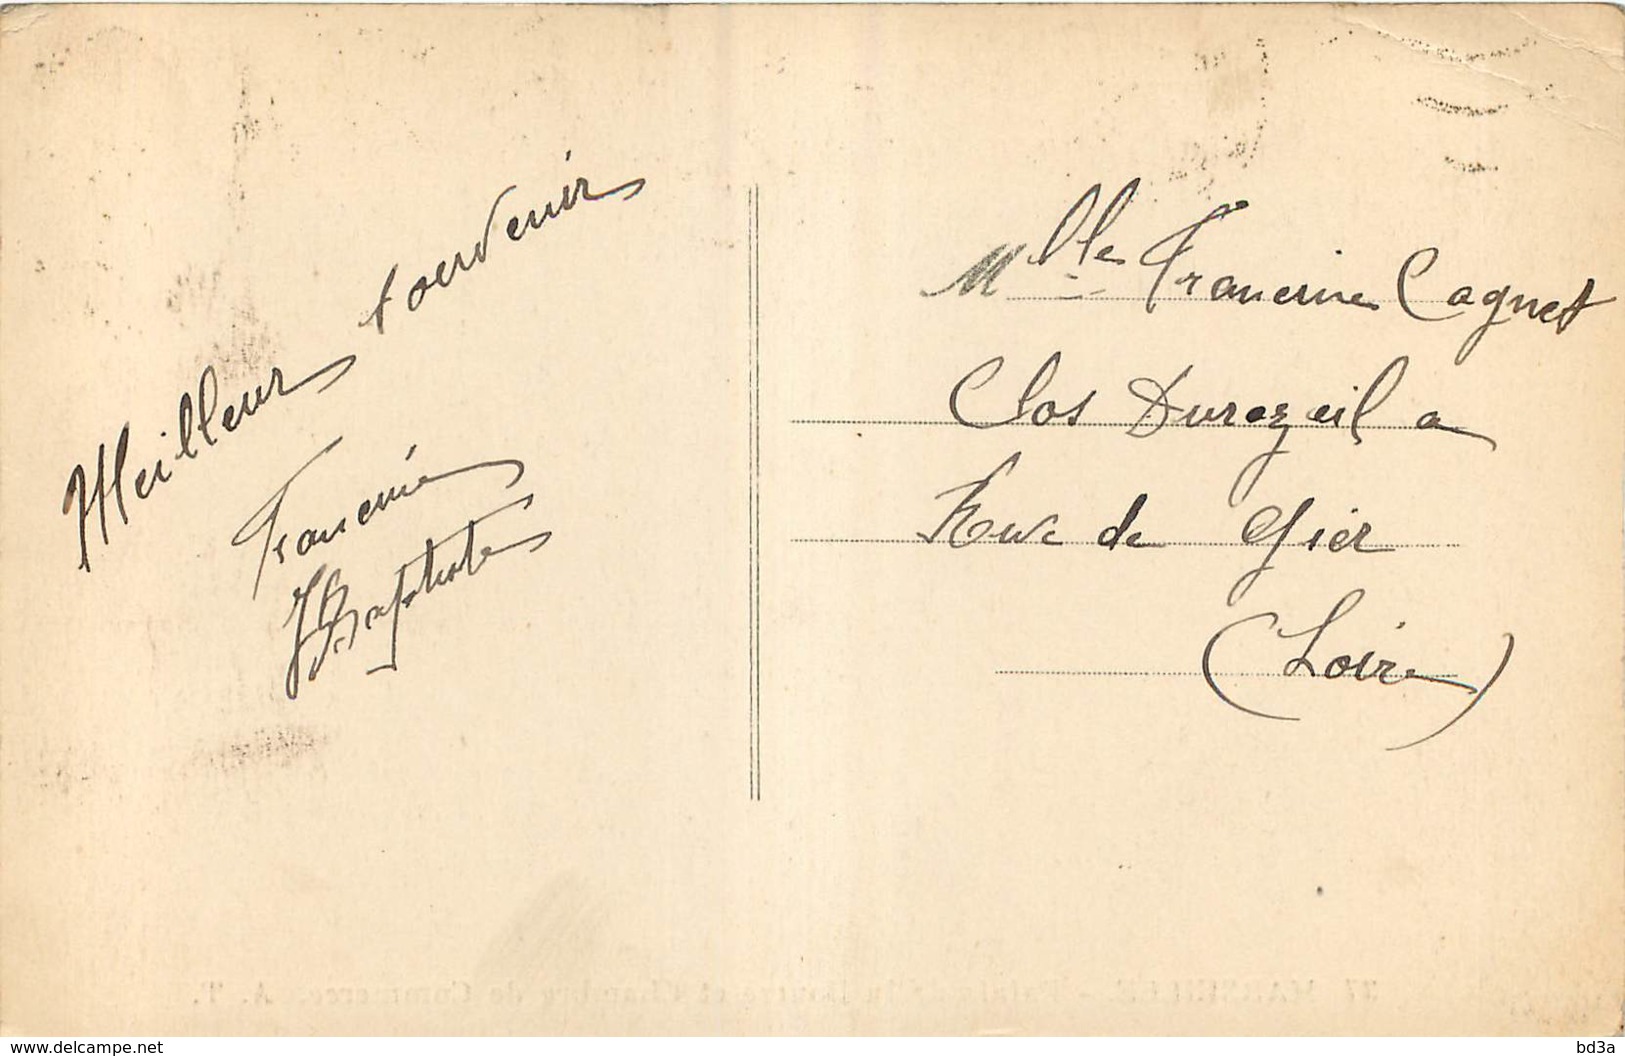 Meilleur souvenir
Francine
JBaptiste
Mlle Francine Cagnet
Clos Durozeil a
Rive de Gier
(Loire)
37 MARSEILLE - Palais de la Bourse et Chambre de Commerce. A. T.
www.delcampe.net
bd3a